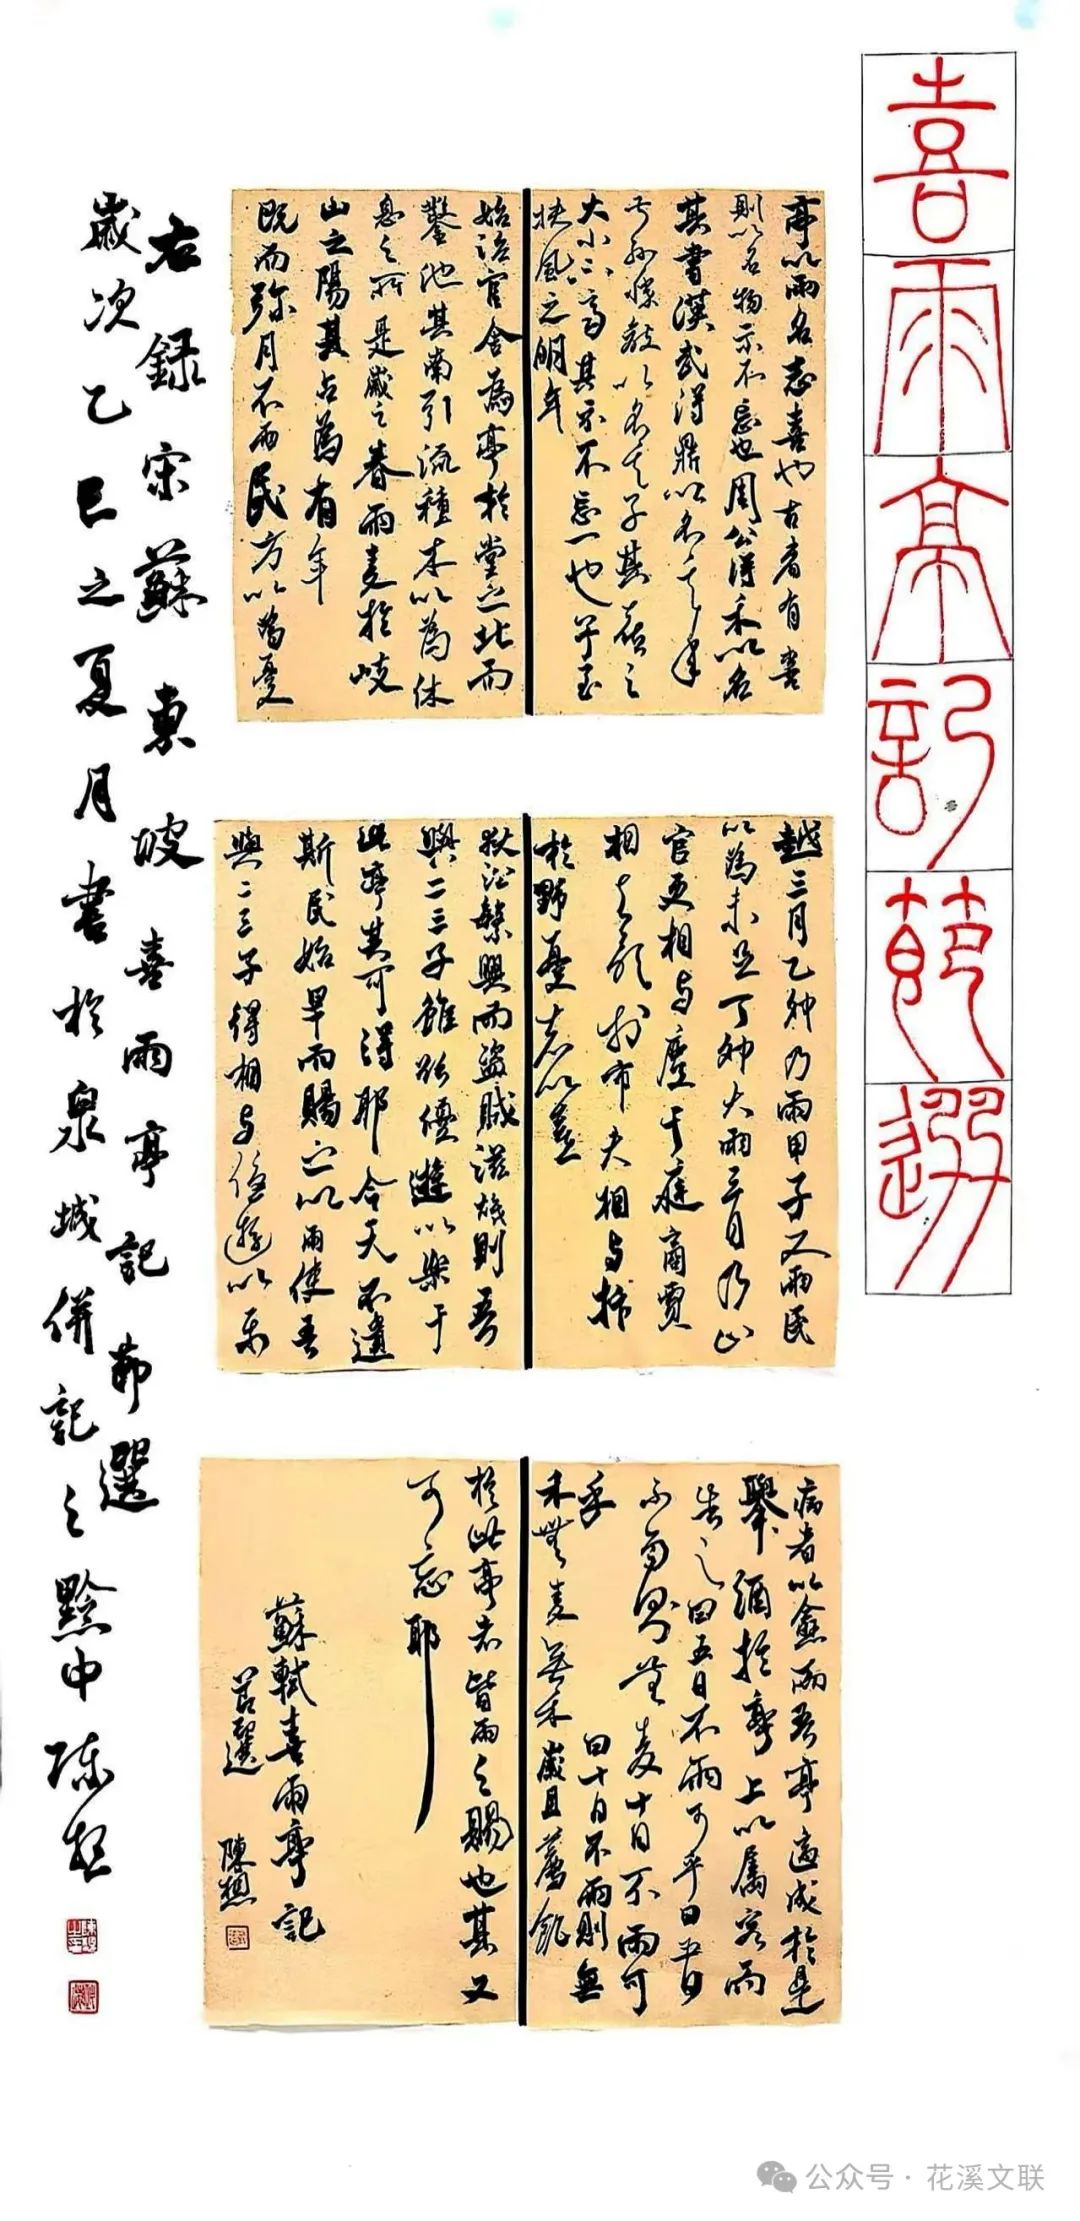 喜雨亭記節選
亭以雨名志喜也古者有喜
則以名物示不忘也周公得禾以名
其書漢武得鼎以名其年
大小不齊其示不忘一也予至
扶風之明年
始治官舍為亭於堂之北而
鑿池其南引流種木以為休
息之所是歲之春雨麥於岐
山之陽其占為有年
既而彌月不雨民方以為憂
越三月乙卯乃雨甲子又雨民
以為未足丁卯大雨三日乃止
官吏相与慶于庭商賈
相与歌於市夫相与抃
於野憂者以喜
病者以愈而吾亭適成於是
舉酒於亭上以屬客而
告之曰五日不雨可乎曰五日
不雨則無麥十日不雨可
乎曰十日不雨則無
禾無麥無禾歲且薦饑
獄訟繁興而盜賊滋熾則吾
與二三子雖欲優遊以樂于
此亭其可得耶今天不遺
斯民始旱而賜之以雨使吾
與二三子得相与優遊以樂
於此亭者皆雨之賜也其又
可忘耶
蘇軾喜雨亭記
節選 陳想
右録宋蘇東坡喜雨亭記節選
歲次乙巳之夏月書於泉城併記之黔中陳想
公众号·花溪文联